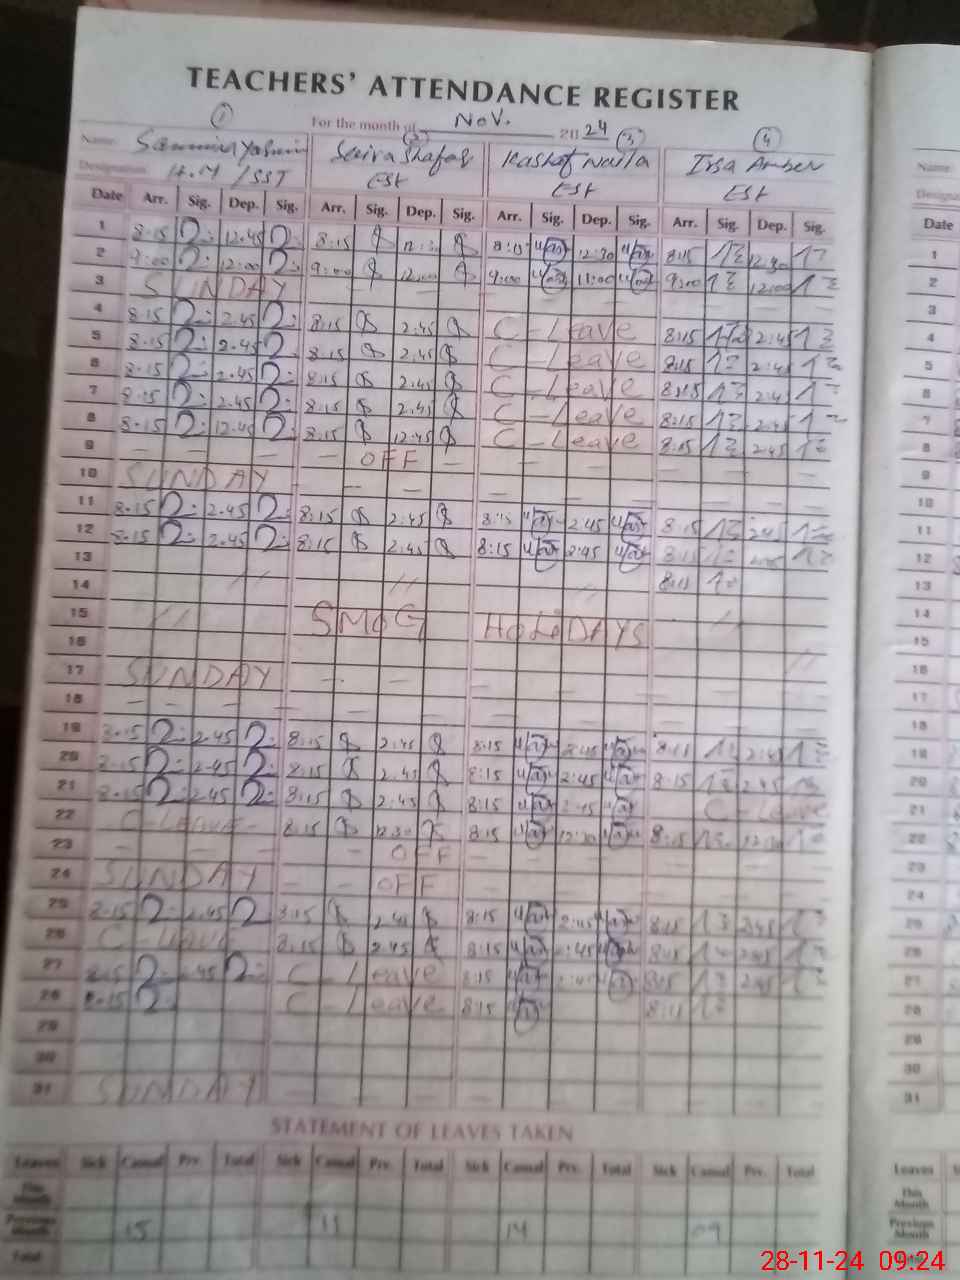 TEACHERS' ATTENDANCE REGISTER
① For the month of Nov. 2024
Name: Saira Shafaq ② Kashaf Naila ③ Irsa Amber ④ Name
Designation H.M / SST EST EST EST
Date Arr. Sig. Dep. Sig. Arr. Sig. Dep. Sig. Arr. Sig. Dep. Sig. Arr. Sig. Dep. Sig. Date
1 8:15 12.45 8:15 8:15 12:30 8:15 12:30 1
2 9:00 12:00 9:00 12:00 9:00 11:00 9:00 12:00 2
3 SUNDAY — — — — 3
4 8:15 2.45 8:15 2:45 C-Leave 8:15 2:45 4
5 8:15 2.45 8:15 2:45 C-Leave 8:15 2:45 5
6 8:15 2.45 8:15 2:45 C-Leave 8:15 2:45 6
7 8:15 2.45 8:15 2:45 C-Leave 8:15 2:45 7
8 8:15 12.45 8:15 12:45 C-Leave 8:15 2:45 8
9 — — — — OFF — — — 9
10 SUNDAY — — — — 10
11 8:15 2.45 8:15 2:45 8:15 2:45 8:15 2:45 11
12 8:15 2.45 8:15 2:45 8:15 2:45 8:15 12
13 8:15 13
14 // // // 14
15 // SMOG HOLIDAYS 15
16 // 16
17 SUNDAY — — — — 17
18 — — — — 18
19 8:15 2.45 8:15 2:45 8:15 2:45 8:15 2:45 19
20 8:15 2.45 8:15 2:45 8:15 2:45 8:15 2:45 20
21 8:15 2.45 8:15 2:45 8:15 2:45 C-Leave 21
22 C-Leave 8:15 12:30 8:15 12:30 8:15 22
23 — — — OFF — — 23
24 SUNDAY — — OFF — 24
25 8:15 2.45 8:15 2:45 8:15 2:45 8:15 2:45 25
26 C-Leave 8:15 2:45 8:15 2:45 8:15 2:45 26
27 8:15 2.45 C-Leave 8:15 2:45 8:15 2:45 27
28 8:15 C-Leave 8:15 8:15 28
29 29
30 30
31 SUNDAY — — — — 31
STATEMENT OF LEAVES TAKEN
Leaves Sick Casual Prv. Total Sick Casual Prv. Total Sick Casual Prv. Total Sick Casual Prv. Total Leaves
This Month This Month
Previous Month 15 11 14 09 Previous Month
Total Total
28-11-24 09:24